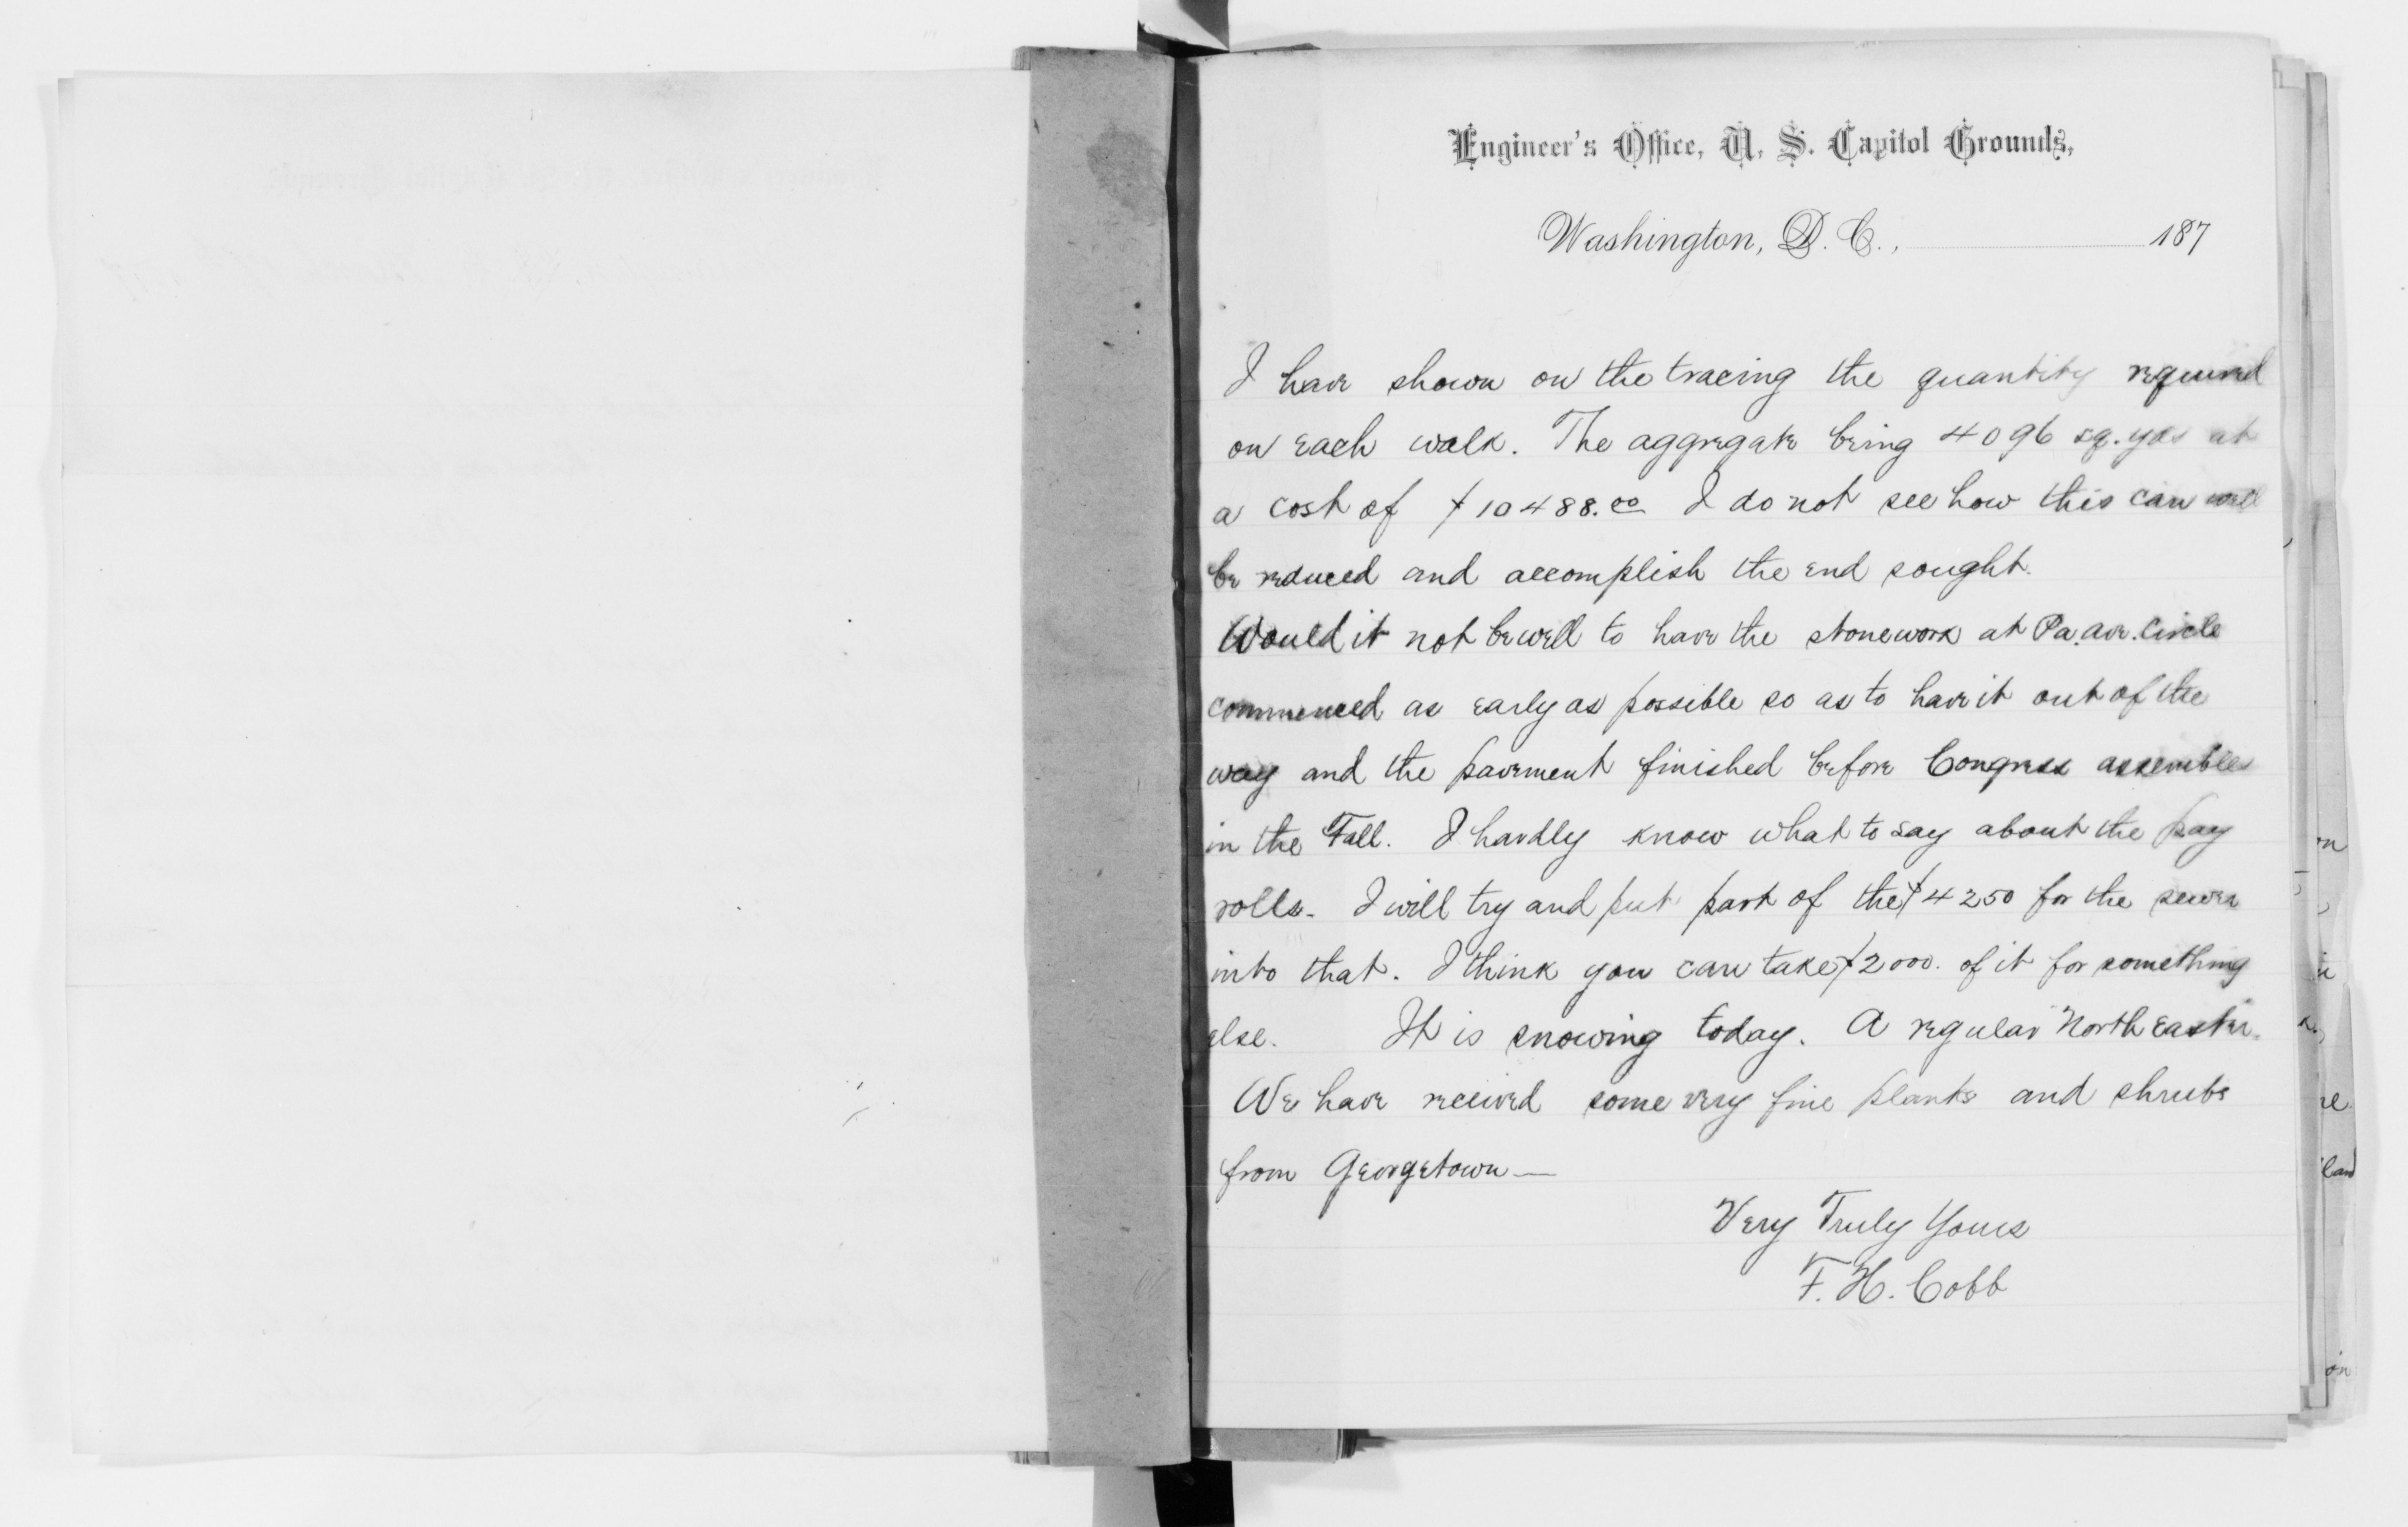 Engineer's Office, U. S. Capitol Grounds,
Washington, D. C., 187
I have shown on the tracing the quantity required
on each walk. The aggregate being 4096 sq. yds at
a cost of $10488.00 I do not see how this can well
be reduced and accomplish the end sought.
Would it not be well to have the stonework at Pa. Ave. Circle
commenced as early as possible so as to have it out of the
way and the pavement finished before Congress assembles
in the Fall. I hardly know what to say about the pay
rolls. I will try and put part of the $4250 for the sewer
into that. I think you can take $2000. of it for something
else. It is snowing today. A regular North Easter.
We have received some very fine plants and shrubs
from Georgetown—
Very Truly Yours
F. H. Cobb